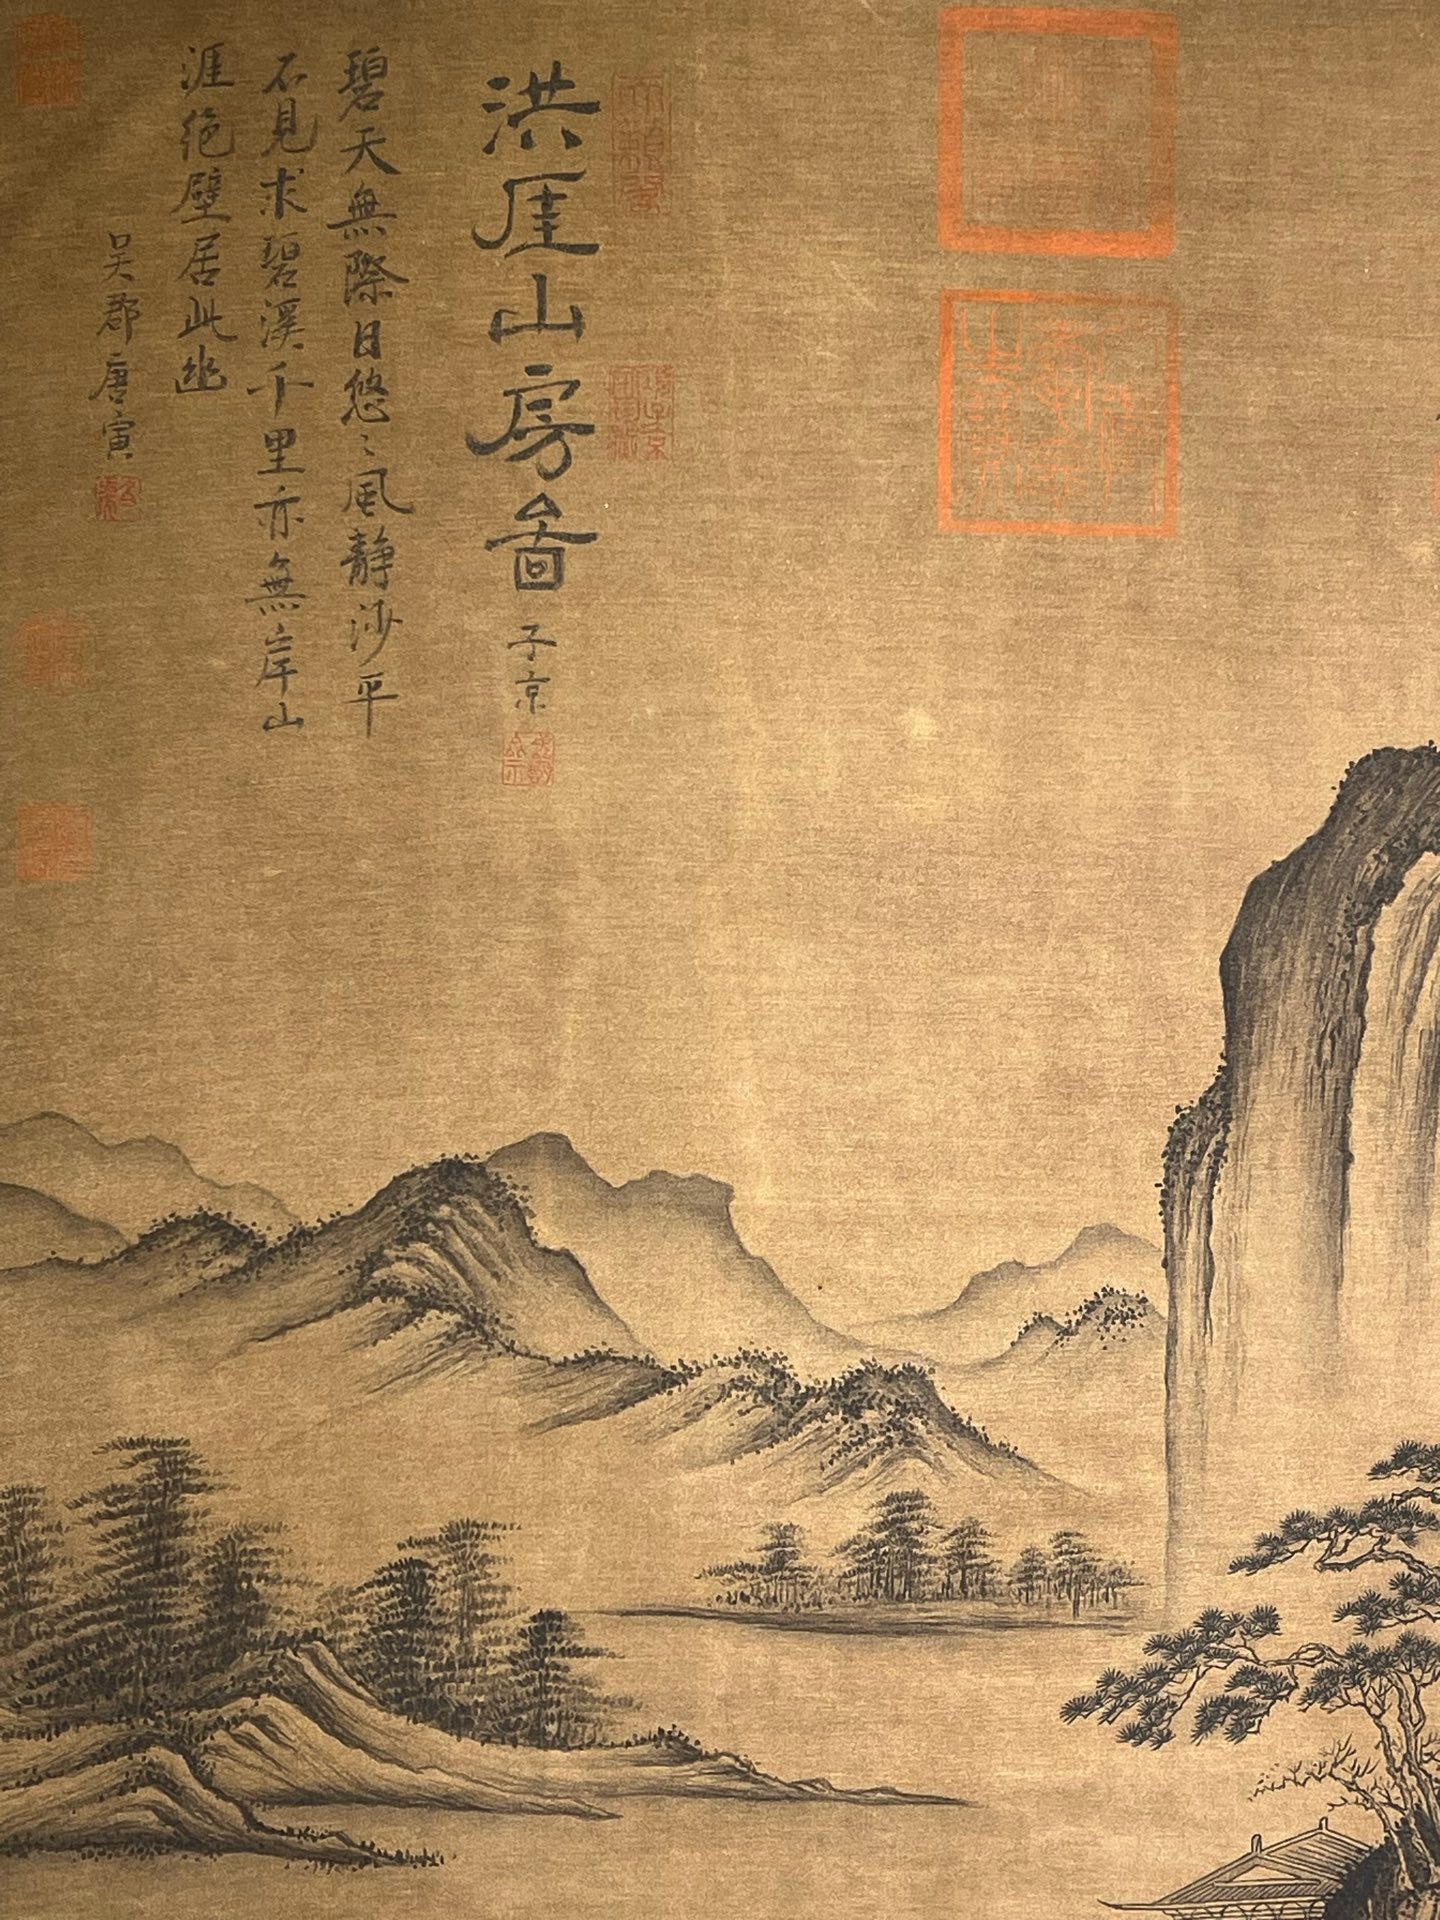 洪厓山房啚
子京
碧天無際日悠〻風靜沙平
不見求碧溪千里亦無岸山
涯絕壁居此幽
吳郡唐寅